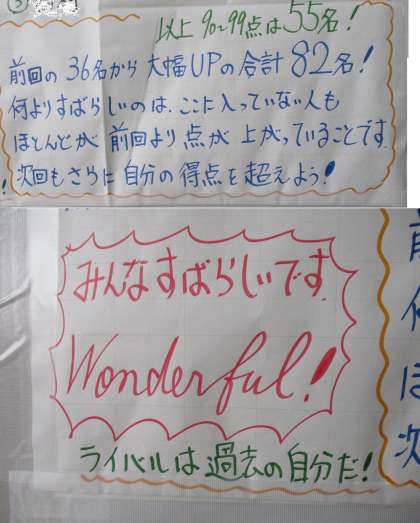 以上 90~99点は55名!
前回の 36名から 大幅UPの合計 82名!
何よりすばらしいのは、ここに入っていない人も
ほとんどが 前回より 点が 上がっていることです。
次回もさらに 自分の 得点を超えよう!
みんなすばらしいです。
Wonderful!
ライバルは過去の自分だ!